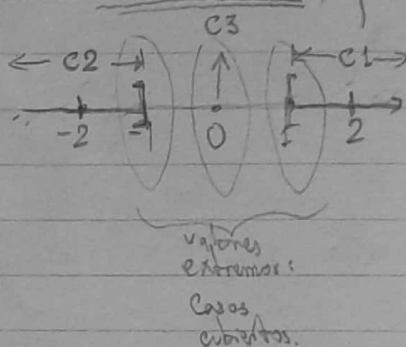 C3
C2 C1
-2 -1 0 1 2
valores
extremos:
Casos
cubiertos.